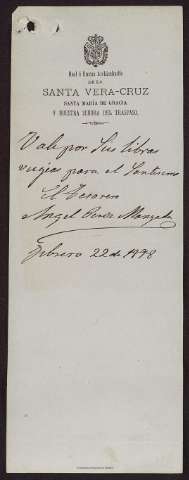 Real é Ilustre Archicofradía
DE LA
SANTA VERA-CRUZ
SANTA MARÍA DE GRACIA
Y NUESTRA SEÑORA DEL TRASPASO.
Vale por Seis libras
vugias para el Santisimo
El Tesorero
Angel Perez
Febrero 22 de 1898